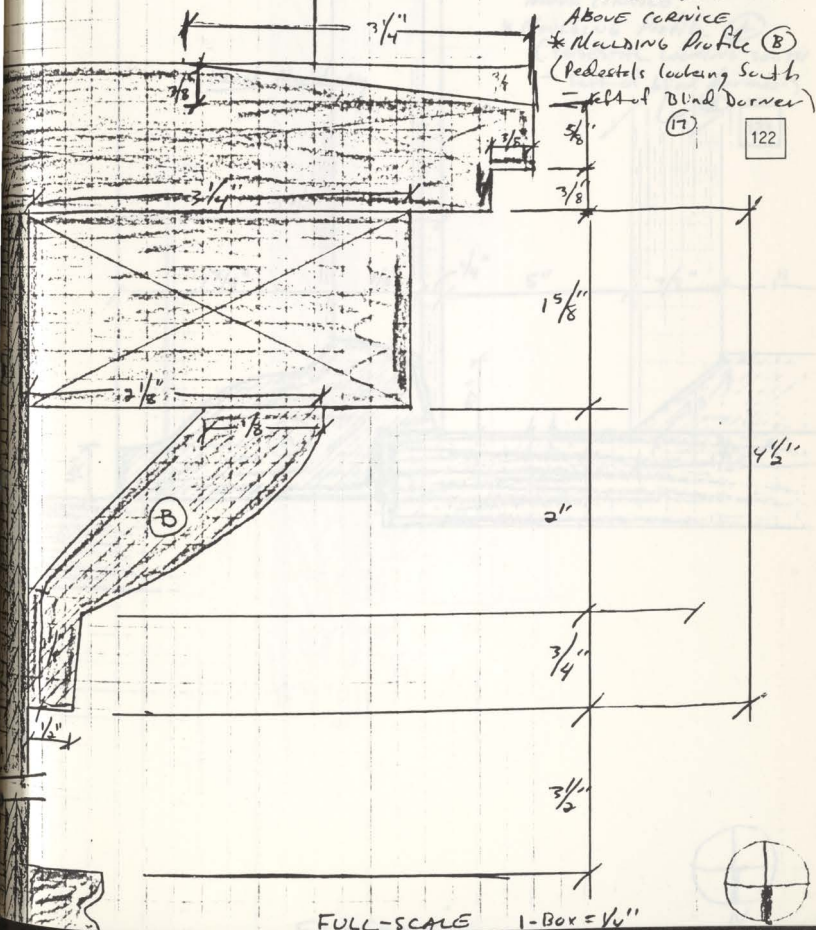 ABOVE CORNICE
* Moulding Profile (B)
(Pedestals looking South
- left of Blind Dormer)
(17)
122
3 1/4"
3/8"
3/4
5/8"
3/8"
3/8"
3 1/4"
1 5/8"
2 1/8"
1/8
4 1/2"
B
2"
3/4"
1/2"
3 1/2"
FULL-SCALE 1-BOX = 1/4"